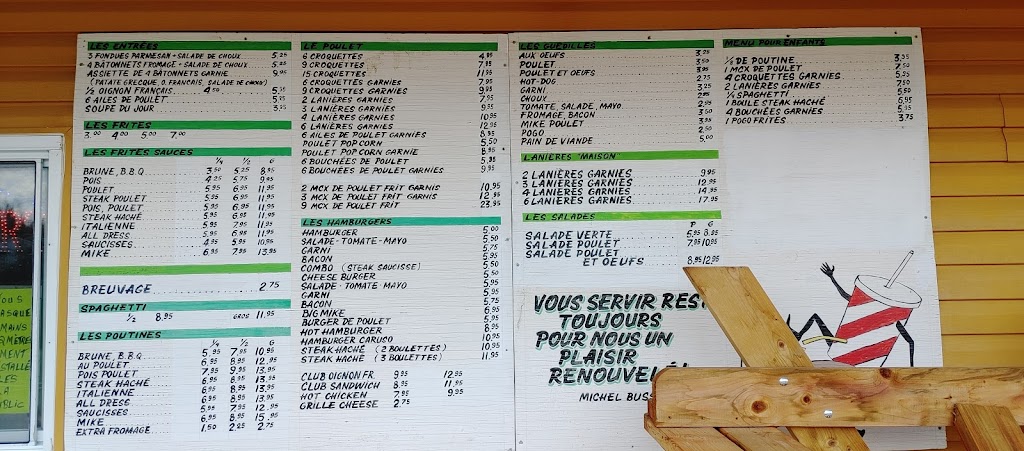 LES ENTRÉES
3 FONDUES PARMESAN + SALADE DE CHOUX 5.25
4 BATONNETS FROMAGE + SALADE DE CHOUX 5.25
ASSIETTE DE 4 BÂTONNETS GARNIE 9.95
(PATATE GRECQUE, O. FRANCAIS, SALADE DE CHOUX)
½ OIGNON FRANÇAIS 4.50
6 AILES DE POULET
SOUPE DU JOUR
LES FRITES
3.00 4.00 5.00 7.00
LES FRITES SAUCES
¼ ½ G
BRUNE, B.B.Q. 3.50 5.25 8.95
POIS 4.25 5.75 9.95
POULET 5.95 6.95 11.95
STEAK POULET 5.95 6.95 11.95
POIS, POULET 5.95 6.95 11.95
STEAK HACHÉ 5.95 6.95 11.95
ITALIENNE 5.95 7.95 11.95
ALL DRESS 5.95 6.95 11.95
SAUCISSES 4.95 5.95 10.95
MIKE 6.95 7.95 13.95
BREUVAGE 2.75
SPAGHETTI
½ 8.95 GROS 11.95
LES POUTINES
¼ ½ G
BRUNE, B.B.Q. 5.95 7.95 10.95
AU POULET 6.95 8.95 12.95
POIS POULET 7.95 9.95 13.95
STEAK HACHÉ 6.95 8.95 13.95
ITALIENNE 6.95 8.95 13.95
ALL DRESS 6.95 8.95 13.95
SAUCISSES 5.95 7.95 12.95
MIKE 6.95 8.95 15.95
EXTRA FROMAGE 1.50 2.25 2.75
LE POULET
6 CROQUETTES 4.95
9 CROQUETTES 7.95
15 CROQUETTES 11.95
6 CROQUETTES GARNIES 7.95
9 CROQUETTES GARNIES 9.95
2 LANIÈRES GARNIES 7.95
3 LANIÈRES GARNIES 9.95
4 LANIÈRES GARNIES 10.95
6 LANIÈRES GARNIES 12.95
6 AILES DE POULET GARNIES 8.95
POULET POP CORN 5.50
POULET POP CORN GARNIE 8.95
6 BOUCHÉES DE POULET 5.95
6 BOUCHÉES DE POULET GARNIES 9.95
2 MCX DE POULET FRIT GARNIS 10.95
3 MCX DE POULET FRIT GARNIS 12.95
9 MCX DE POULET FRIT 23.95
LES HAMBURGERS
HAMBURGER 5.00
SALADE-TOMATE-MAYO 5.50
GARNI 5.75
BACON 5.95
COMBO (STEAK SAUCISSE) 5.50
CHEESE BURGER 5.50
SALADE-TOMATE-MAYO 5.95
GARNI
BACON
BIG MIKE 6.95
BURGER DE POULET 5.95
HOT HAMBURGER 8.95
HAMBURGER CARUSO 10.95
STEAK HACHÉ (2 BOULETTES) 10.95
STEAK HACHÉ (3 BOULETTES) 11.95
CLUB OIGNON FR. 9.95 12.95
CLUB SANDWICH 8.95 11.95
HOT CHICKEN 7.95 9.95
GRILLE CHEESE 2.75
LES GUEDILLES
AUX OEUFS 3.25
POULET 3.50
POULET ET OEUFS 3.95
HOT-DOG 2.75
GARNI 3.25
CHOUX
TOMATE, SALADE, MAYO 2.95
FROMAGE, BACON 3.50
MIKE POULET 3.95
POGO 2.50
PAIN DE VIANDE 5.00
LANIÈRES "MAISON"
2 LANIÈRES GARNIES 9.95
3 LANIÈRES GARNIES 12.95
4 LANIÈRES GARNIES 14.95
6 LANIÈRES GARNIES 17.95
LES SALADES
P G
SALADE VERTE 5.95 8.95
SALADE POULET 7.95 10.95
SALADE POULET
ET OEUFS 8.95 12.95
VOUS SERVIR
TOUJOURS
POUR NOUS UN
PLAISIR
RENOUVELÉ!
MICHEL
MENU POUR ENFANTS
½ DE POUTINE 3.95
1 MCX DE POULET
4 CROQUETTES GARNIES 5.95
2 LANIÈRES GARNIES 7.50
¼ SPAGHETTI 5.50
1 BOULE STEAK HACHÉ 5.95
4 BOUCHÉES GARNIES 5.95
1 POGO FRITES 3.75